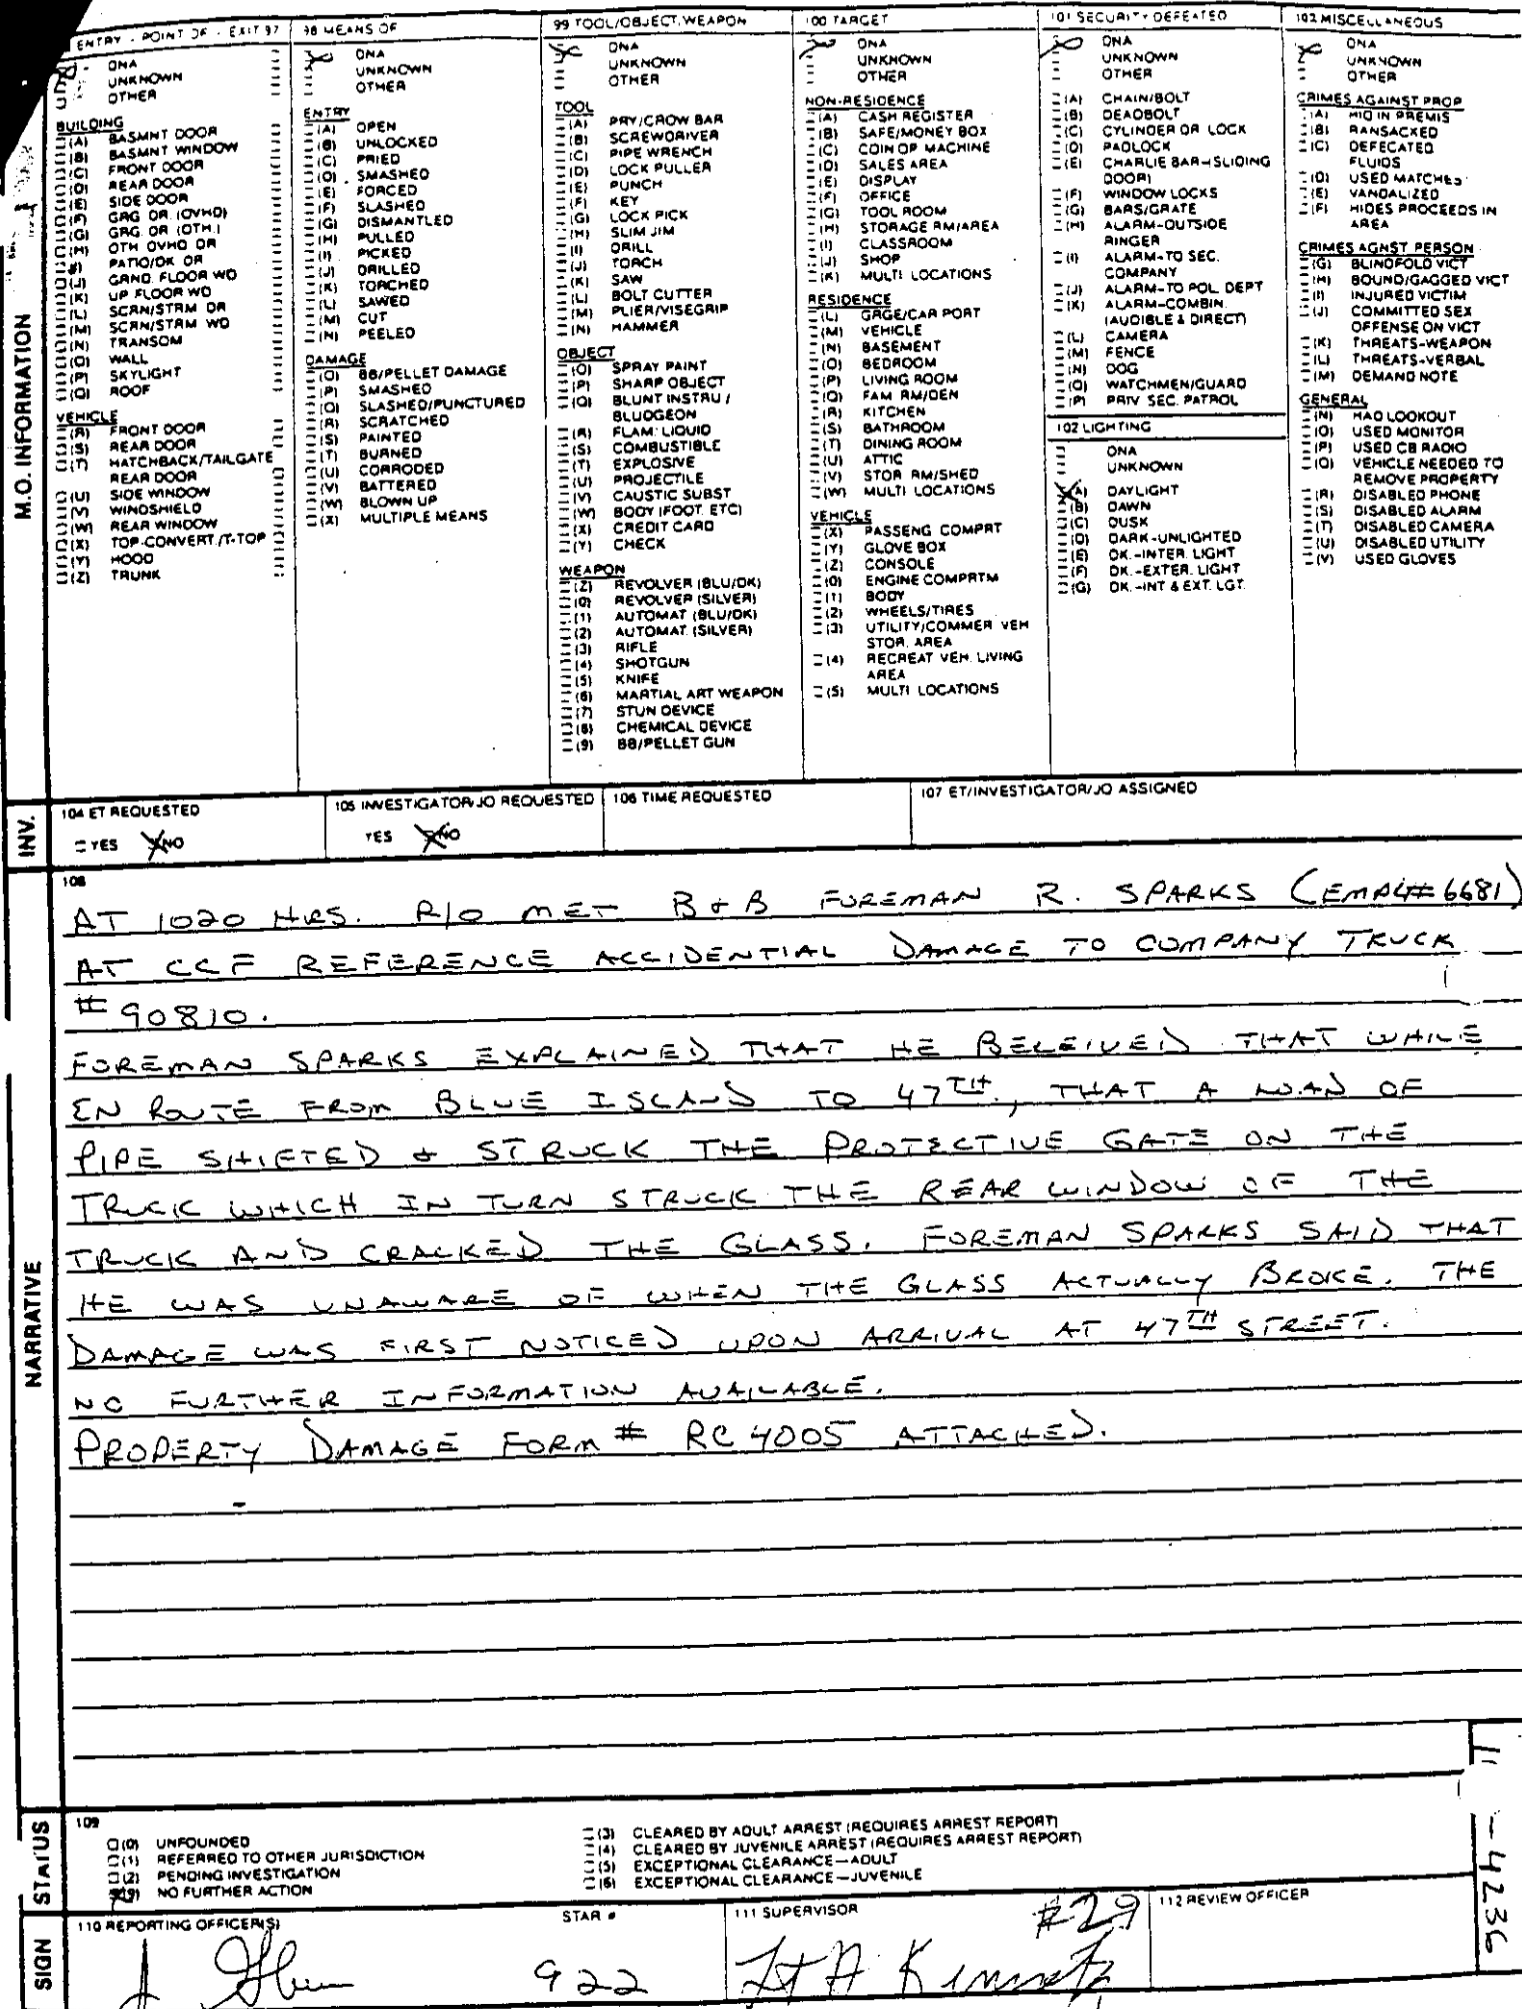 ENTRY - POINT OF - EXIT 97
DNA
UNKNOWN
OTHER
BUILDING
(A) BASMNT DOOR
(B) BASMNT WINDOW
(C) FRONT DOOR
(D) REAR DOOR
(E) SIDE DOOR
(F) GRG DR. (OVHD)
(G) GRG. DR (OTH.)
(H) OTH OVHD DR
(I) PATIO/DK DR
(J) GRND. FLOOR WD
(K) UP FLOOR WD
(L) SCRN/STRM DR
(M) SCRN/STRM WD
(N) TRANSOM
(O) WALL
(P) SKYLIGHT
(Q) ROOF
VEHICLE
(R) FRONT DOOR
(S) REAR DOOR
(T) HATCHBACK/TAILGATE
REAR DOOR
(U) SIDE WINDOW
(V) WINDSHIELD
(W) REAR WINDOW
(X) TOP-CONVERT./T-TOP
(Y) HOOD
(Z) TRUNK
98 MEANS OF
DNA
UNKNOWN
OTHER
ENTRY
(A) OPEN
(B) UNLOCKED
(C) PRIED
(D) SMASHED
(E) FORCED
(F) SLASHED
(G) DISMANTLED
(H) PULLED
(I) PICKED
(J) DRILLED
(K) TORCHED
(L) SAWED
(M) CUT
(N) PEELED
DAMAGE
(O) BB/PELLET DAMAGE
(P) SMASHED
(Q) SLASHED/PUNCTURED
(R) SCRATCHED
(S) PAINTED
(T) BURNED
(U) CORRODED
(V) BATTERED
(W) BLOWN UP
(X) MULTIPLE MEANS
99 TOOL/OBJECT, WEAPON
DNA
UNKNOWN
OTHER
TOOL
(A) PRY/CROW BAR
(B) SCREWDRIVER
(C) PIPE WRENCH
(D) LOCK PULLER
(E) PUNCH
(F) KEY
(G) LOCK PICK
(H) SLIM JIM
(I) DRILL
(J) TORCH
(K) SAW
(L) BOLT CUTTER
(M) PLIER/VISEGRIP
(N) HAMMER
OBJECT
(O) SPRAY PAINT
(P) SHARP OBJECT
(Q) BLUNT INSTRU /
BLUDGEON
(R) FLAM. LIQUID
(S) COMBUSTIBLE
(T) EXPLOSIVE
(U) PROJECTILE
(V) CAUSTIC SUBST
(W) BODY (FOOT. ETC)
(X) CREDIT CARD
(Y) CHECK
WEAPON
(Z) REVOLVER (BLU/DK)
(0) REVOLVER (SILVER)
(1) AUTOMAT (BLU/DK)
(2) AUTOMAT. (SILVER)
(3) RIFLE
(4) SHOTGUN
(5) KNIFE
(6) MARTIAL ART WEAPON
(7) STUN DEVICE
(8) CHEMICAL DEVICE
(9) BB/PELLET GUN
100 TARGET
DNA
UNKNOWN
OTHER
NON-RESIDENCE
(A) CASH REGISTER
(B) SAFE/MONEY BOX
(C) COIN OP MACHINE
(D) SALES AREA
(E) DISPLAY
(F) OFFICE
(G) TOOL ROOM
(H) STORAGE RM/AREA
(I) CLASSROOM
(J) SHOP
(K) MULTI LOCATIONS
RESIDENCE
(L) GRGE/CAR PORT
(M) VEHICLE
(N) BASEMENT
(O) BEDROOM
(P) LIVING ROOM
(Q) FAM RM/DEN
(R) KITCHEN
(S) BATHROOM
(T) DINING ROOM
(U) ATTIC
(V) STOR RM/SHED
(W) MULTI LOCATIONS
VEHICLE
(X) PASSENG COMPRT
(Y) GLOVE BOX
(Z) CONSOLE
(0) ENGINE COMPRTM
(1) BODY
(2) WHEELS/TIRES
(3) UTILITY/COMMER VEH
STOR. AREA
(4) RECREAT VEH. LIVING
AREA
(5) MULTI LOCATIONS
101 SECURITY DEFEATED
DNA
UNKNOWN
OTHER
(A) CHAIN/BOLT
(B) DEADBOLT
(C) CYLINDER OR LOCK
(D) PADLOCK
(E) CHARLIE BAR-(SLIDING
DOOR)
(F) WINDOW LOCKS
(G) BARS/GRATE
(H) ALARM-OUTSIDE
RINGER
(I) ALARM-TO SEC.
COMPANY
(J) ALARM-TO POL. DEPT
(K) ALARM-COMBIN.
(AUDIBLE & DIRECT)
(L) CAMERA
(M) FENCE
(N) DOG
(O) WATCHMEN/GUARD
(P) PRIV SEC. PATROL
102 LIGHTING
DNA
UNKNOWN
(A) DAYLIGHT
(B) DAWN
(C) DUSK
(D) DARK-UNLIGHTED
(E) DK.-INTER. LIGHT
(F) DK.-EXTER. LIGHT
(G) DK.-INT & EXT. LGT.
102 MISCELLANEOUS
DNA
UNKNOWN
OTHER
CRIMES AGAINST PROP
(A) HID IN PREMIS
(B) RANSACKED
(C) DEFECATED
FLUIDS
(D) USED MATCHES
(E) VANDALIZED
(F) HIDES PROCEEDS IN
AREA
CRIMES AGNST PERSON
(G) BLINDFOLD VICT
(H) BOUND/GAGGED VICT
(I) INJURED VICTIM
(J) COMMITTED SEX
OFFENSE ON VICT
(K) THREATS-WEAPON
(L) THREATS-VERBAL
(M) DEMAND NOTE
GENERAL
(N) HAD LOOKOUT
(O) USED MONITOR
(P) USED CB RADIO
(Q) VEHICLE NEEDED TO
REMOVE PROPERTY
(R) DISABLED PHONE
(S) DISABLED ALARM
(T) DISABLED CAMERA
(U) DISABLED UTILITY
(V) USED GLOVES
M.O. INFORMATION
INV.
104 ET REQUESTED
YES NO
105 INVESTIGATOR/JO REQUESTED
YES NO
106 TIME REQUESTED
107 ET/INVESTIGATOR/JO ASSIGNED
NARRATIVE
108
AT 1020 HRS. R/O MET B+B FOREMAN R. SPARKS (EMPL# 6681)
AT CCF REFERENCE ACCIDENTIAL DAMAGE TO COMPANY TRUCK
# 90810.
FOREMAN SPARKS EXPLAINED THAT HE BELEIVED THAT WHILE
EN ROUTE FROM BLUE ISLAND TO 47TH, THAT A LOAD OF
PIPE SHIFTED & STRUCK THE PROTECTIVE GATE ON THE
TRUCK WHICH IN TURN STRUCK THE REAR WINDOW OF THE
TRUCK AND CRACKED THE GLASS. FOREMAN SPARKS SAID THAT
HE WAS UNAWARE OF WHEN THE GLASS ACTUALLY BROKE. THE
DAMAGE WAS FIRST NOTICED UPON ARRIVAL AT 47TH STREET.
NO FURTHER INFORMATION AVAILABLE.
PROPERTY DAMAGE FORM # RC 4005 ATTACHED.
STATUS
109
(0) UNFOUNDED
(1) REFERRED TO OTHER JURISDICTION
(2) PENDING INVESTIGATION
(9) NO FURTHER ACTION
(3) CLEARED BY ADULT ARREST (REQUIRES ARREST REPORT)
(4) CLEARED BY JUVENILE ARREST (REQUIRES ARREST REPORT)
(5) EXCEPTIONAL CLEARANCE-ADULT
(6) EXCEPTIONAL CLEARANCE-JUVENILE
SIGN
110 REPORTING OFFICER(S)
STAR #
922
111 SUPERVISOR
#29
112 REVIEW OFFICER
-4236